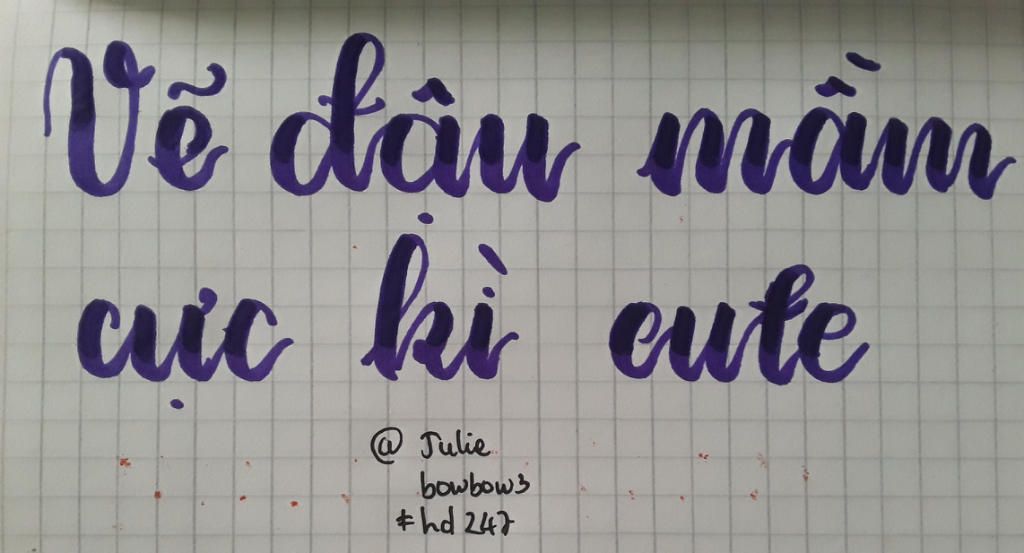 Vẽ đậu mầm
cực kì cute
@ Julie
bowbow3
#hd247